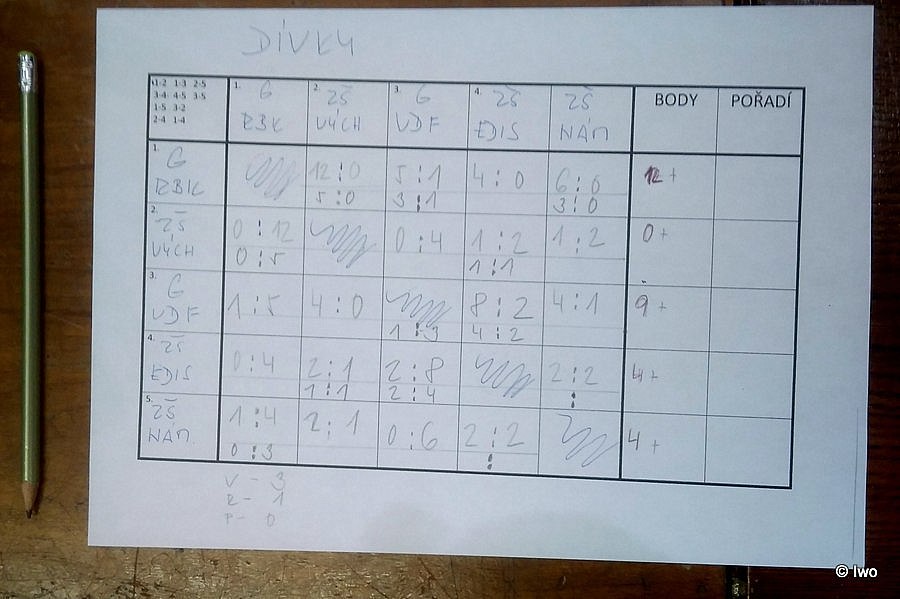 DÍVKY
1-2 1-3 2-5
3-4 4-5 3-5
1-5 3-2
2-4 1-4
1. G RBK
2. ZŠ VÝCH
3. G VDF
4. ZŠ EDIS
ZŠ NÁM
BODY
POŘADÍ
1. G RBK 12:0 5:1 4:0 6:0 12+
5:0 3:1 3:0
2. ZŠ VÝCH 0:12 0:4 1:2 1:2 0+
0:5 1:1
3. G VDF 1:5 4:0 8:2 4:1 9+
1:3 4:2
4. ZŠ EDIS 0:4 2:1 2:8 2:2 4+
1:1 2:4 :
5. ZŠ NÁM. 1:4 2:1 0:6 2:2 4+
0:3 :
V - 3
R - 1
P - 0
© Iwo